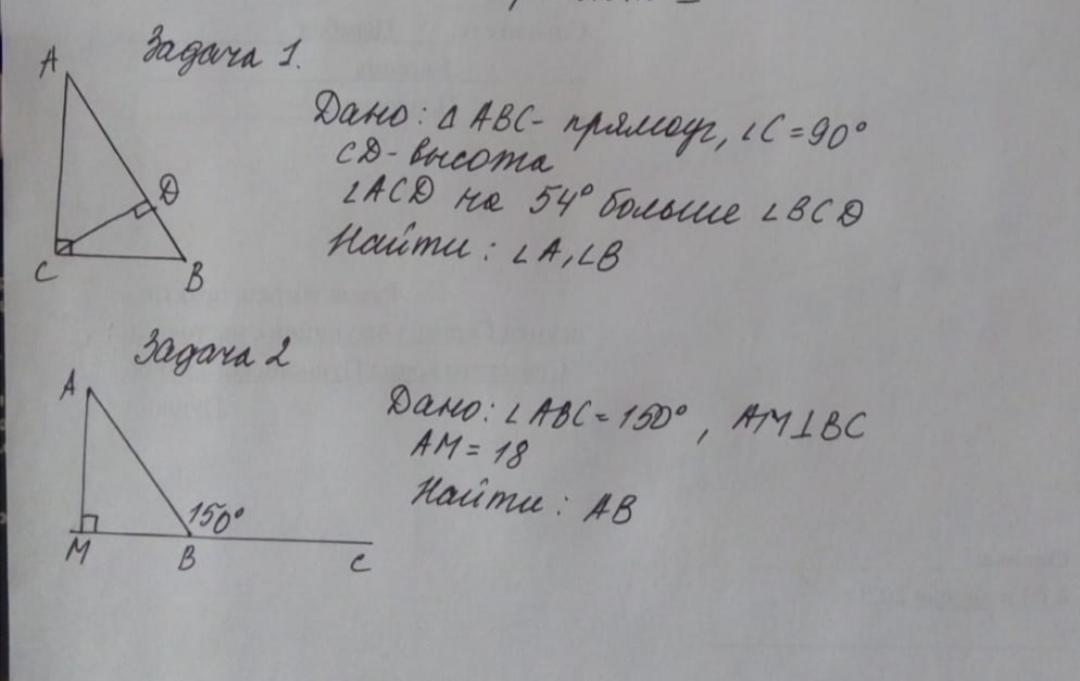 Задача 1.
A
Дано: Δ ABC - прямоуг, ∠C = 90°
CD - высота
D
∠ACD на 54° больше ∠BCD
Найти: ∠A, ∠B
C
B
Задача 2
A
Дано: ∠ABC = 150°, AM⊥BC
AM = 18
Найти: AB
150°
M B C